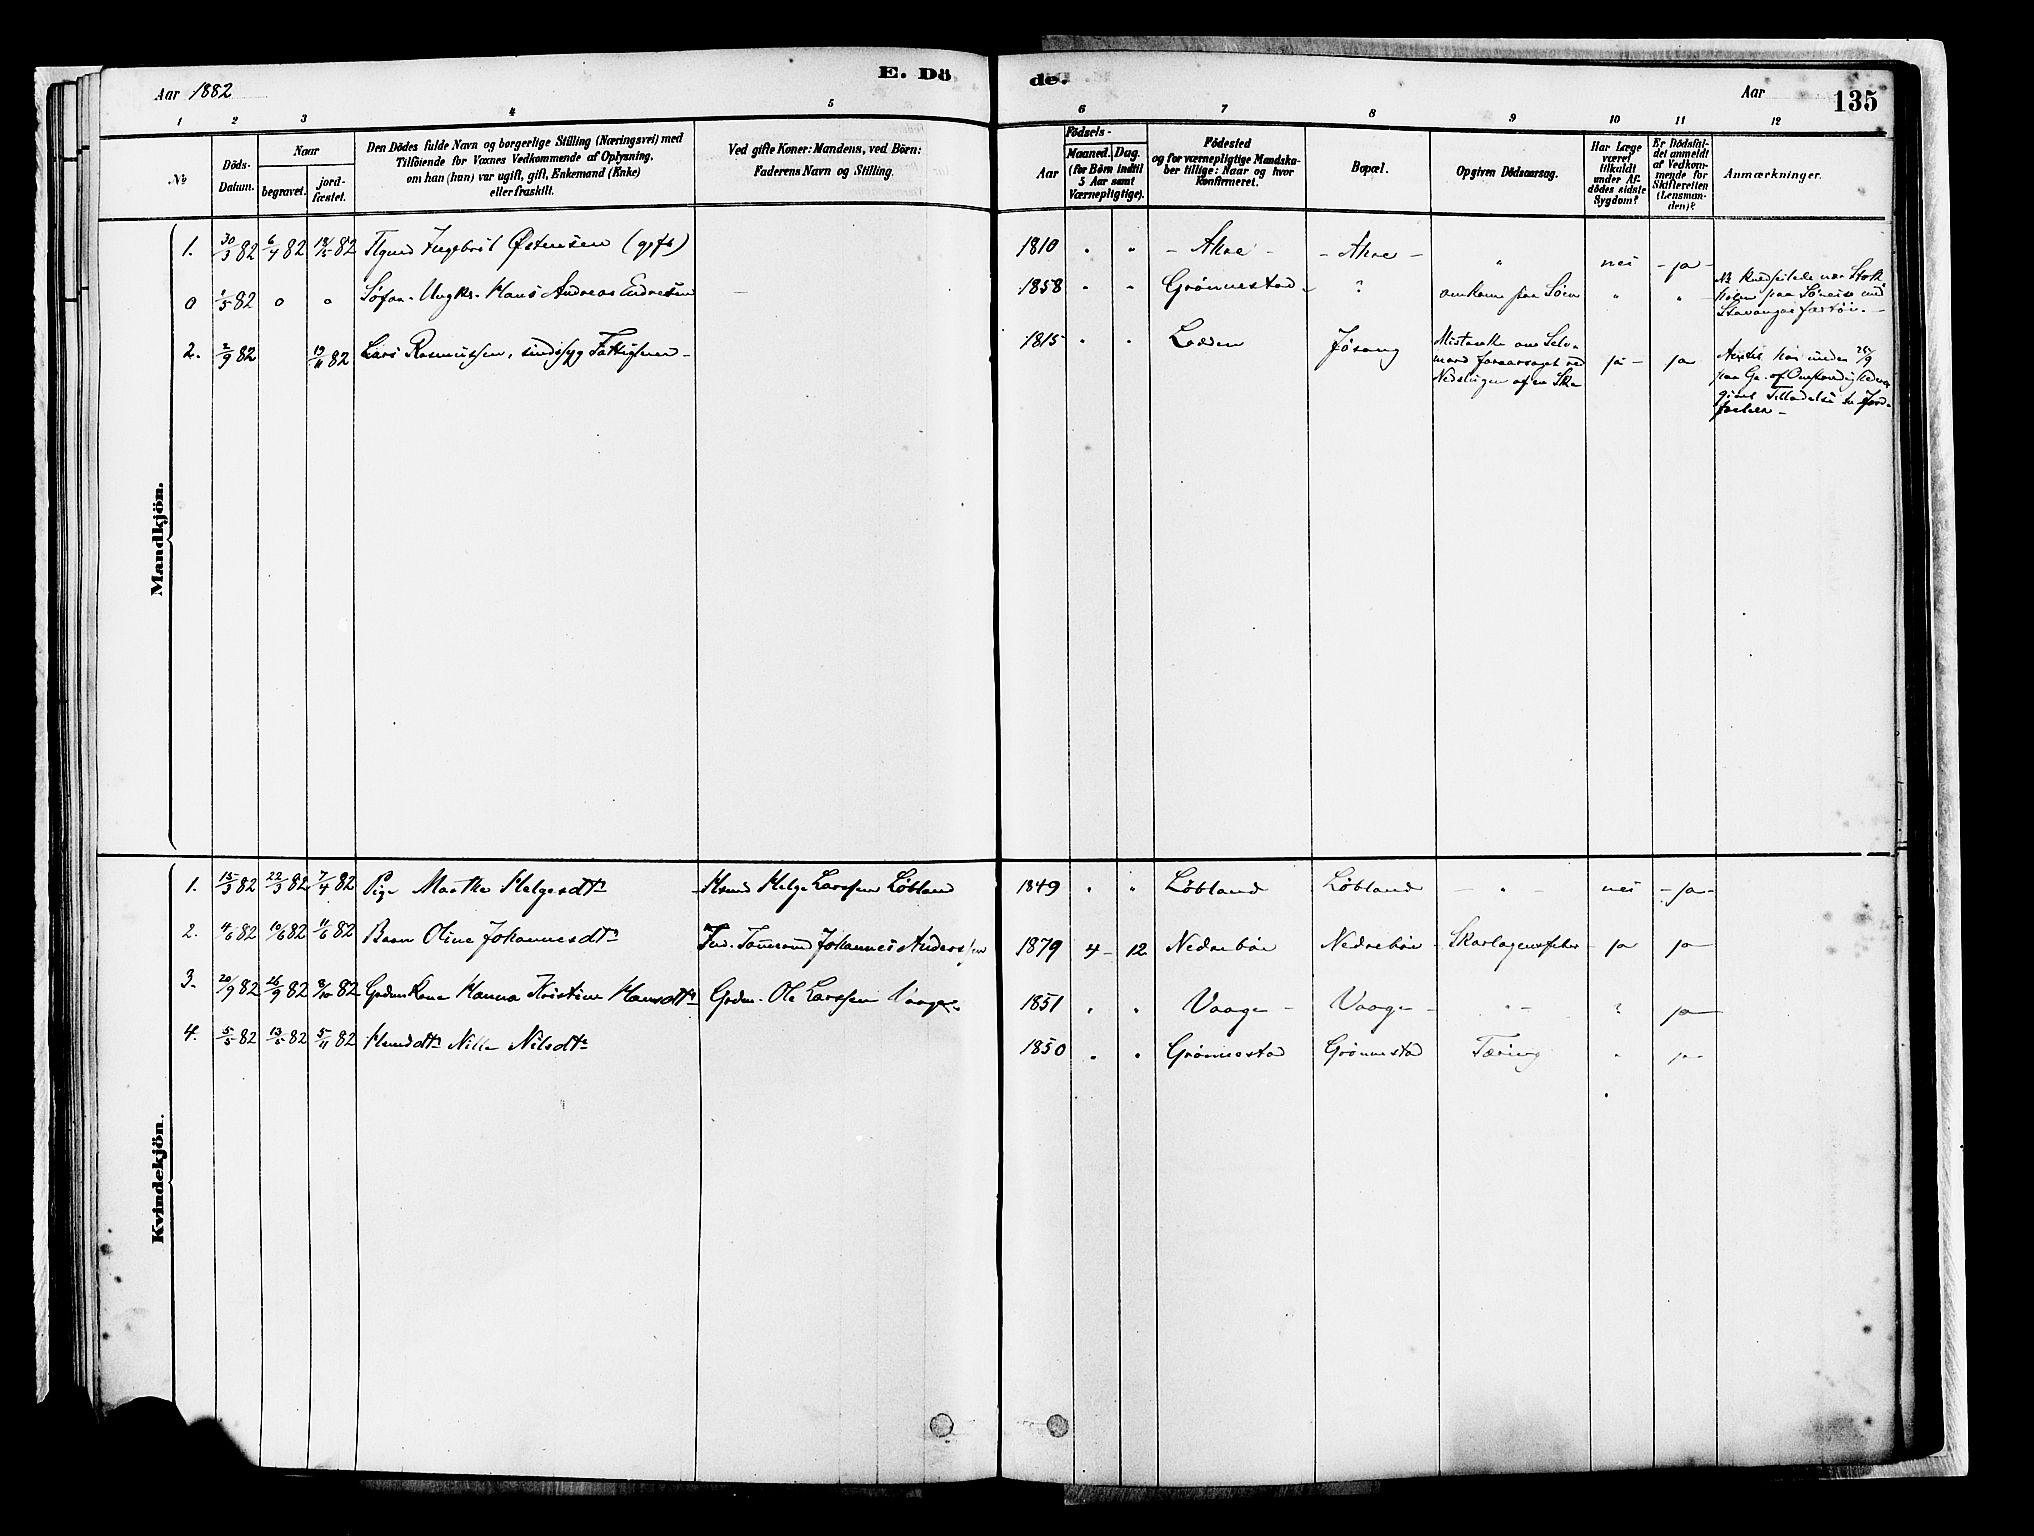 Aar 1882
E. Dö
de.
Aar
135
1 2 3 4 5 6 7 8 9 10 11 12
№
Döds-
Datum.
Naar
begravet.
jord-
fæstet.
Den Dödes fulde Navn og borgerlige Stilling (Næringsvei) med
Tilföiende for Voxnes Vedkommende af Oplysning,
om han (hun) var ugift, gift, Enkemand (Enke)
eller fraskilt.
Ved gifte Koner: Mandens, ved Börn:
Faderens Navn og Stilling.
Födsels-
Aar
Maaned. Dag.
(for Börn indtil
5 Aar samt
Værnepligtige).
Födested
og for værnepligtige Mandska-
ber tillige: Naar og hvor
Konfirmeret.
Bopæl.
Opgiven Dödsaarsag.
Har Læge
været
tilkaldt
under Af-
dödes sidste
Sygdom?
Er Dödsfal-
det anmeldt
af Vedkom-
mende for
Skifteretten
(Lensman-
den)?
Anmærkninger.
Mandkjön.
1. 30/3 82 6/4 82 18/5 82 Ingebret Østensen (gift) 1810 " " - Akre - - Akre - " nei - ja -
0 1/5 82 0 0 Søfar. Ungk. Hans Andreas Endresen 1858 " " Grönnestad - ? omkom paa Søen " "
2. 2/9 82 19/11 82 Lars Rasmussen, sindssyg Fattiglem - 1815 " " Ladden Jøsang Mistanke om Selv-
mord foraarsaget ved
Nedslugen af en Ske ja - ja
Kvindekjön.
1. 15/3 82 22/3 82 7/4 82 Pige Martha Helgesdtr Husmd Helge Larssen Løbland 1849 " " Løbland Løbland - " - nei - ja -
2. 4/6 82 10/6 82 11/6 82 Barn Oline Johannesdtr Johannes Anderssen 1879 4 - 12 Nedrebøe Nedrebøe Skarlagensfeber - ja ja
3. 20/9 82 26/9 82 8/10 82 Gaardmkone Hanna Kristine Hansdtr Gaardm. Ole Larssen Vaage - 1851 " " Vaage - Vaage - " - " ja
4. 5/5 82 13/5 82 5/11 82 Husmdtr Nille Nilsdtr 1850 " " Grönnestad Grönnestad Tæring " ja